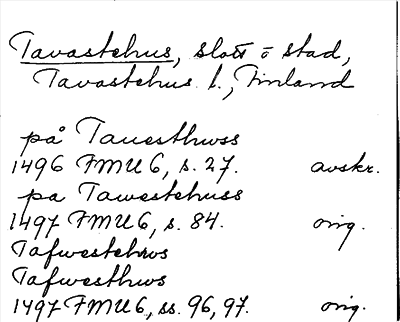 Tavastehus, slott o stad,
Tavastehus l., Finland
på Tauesthwss
1496 FMU 6, s. 27. avskr.
pa Tawestehuss
1497 FMU 6, s. 84. orig.
Tafwestehws
Tafwesthws
1497 FMU 6, ss. 96, 97. orig.